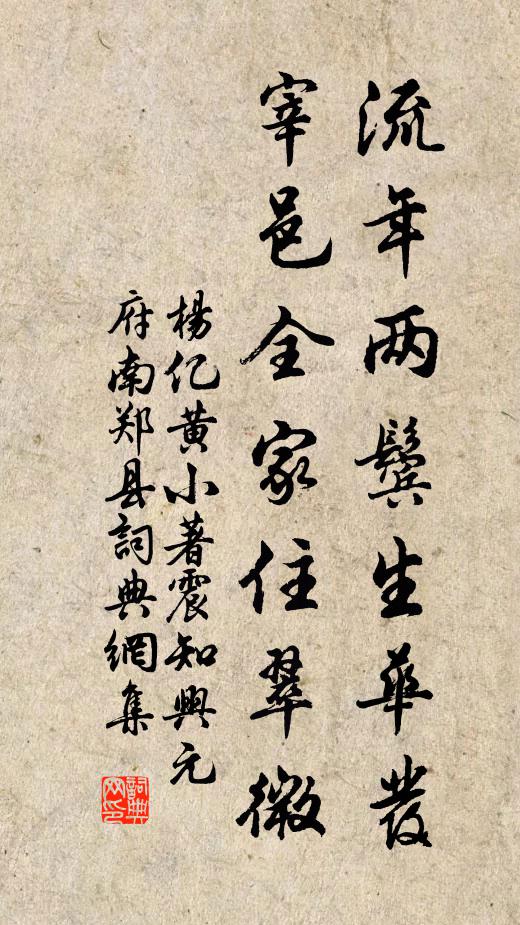 流年两鬓生華發
宰邑全家住翠微
楊亿黄小著震知興元
府南郑县詞典網集
詞典
网印